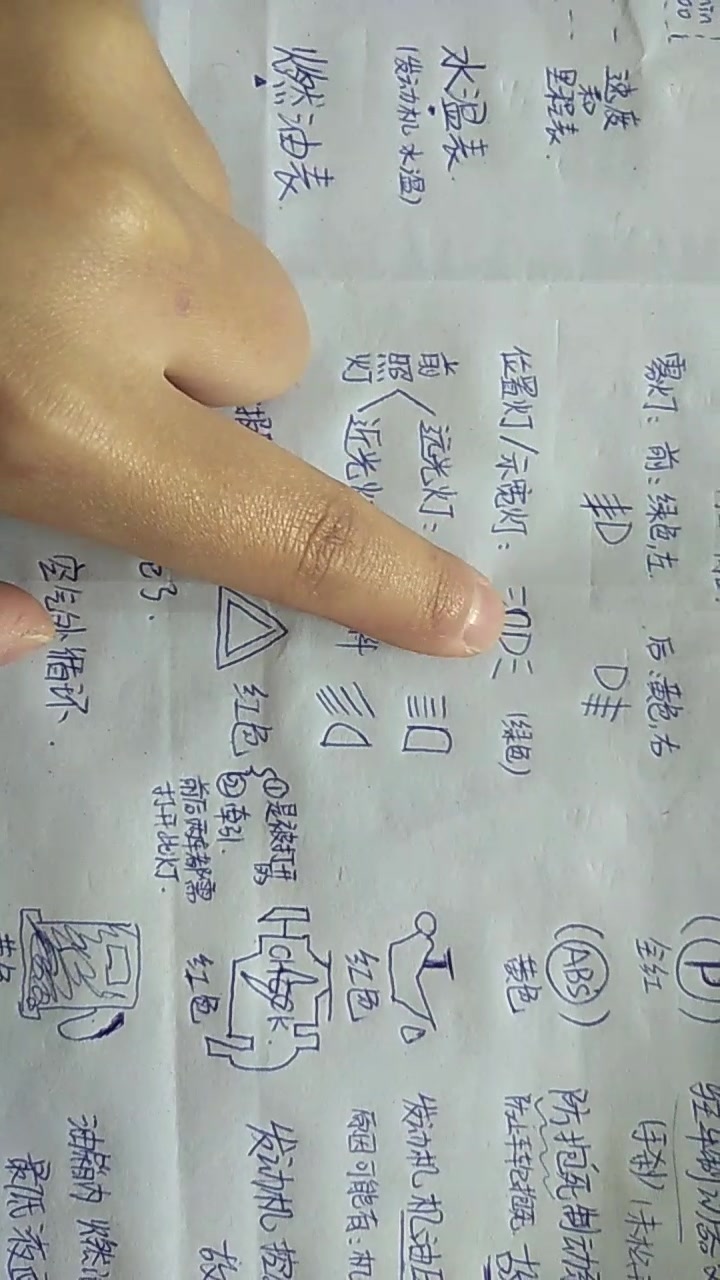 速度
和
里程表
水温表
(发动机水温)
燃油表
雾灯：前：绿色,左 后：黄色,右
位置灯/示宽灯： (绿色)
前
照
灯
远光灯：
近光灯
红色
①是被打开的
②牵引.
前后两车都需
打开此灯.
空气外循环.
P
全红
(ABS)
黄色
红色
CHECK
红色
(手刹)未松
防抱死制动
防止车轮抱死
发动机机油
原因可能有：机
发动机
油箱内燃
最低液